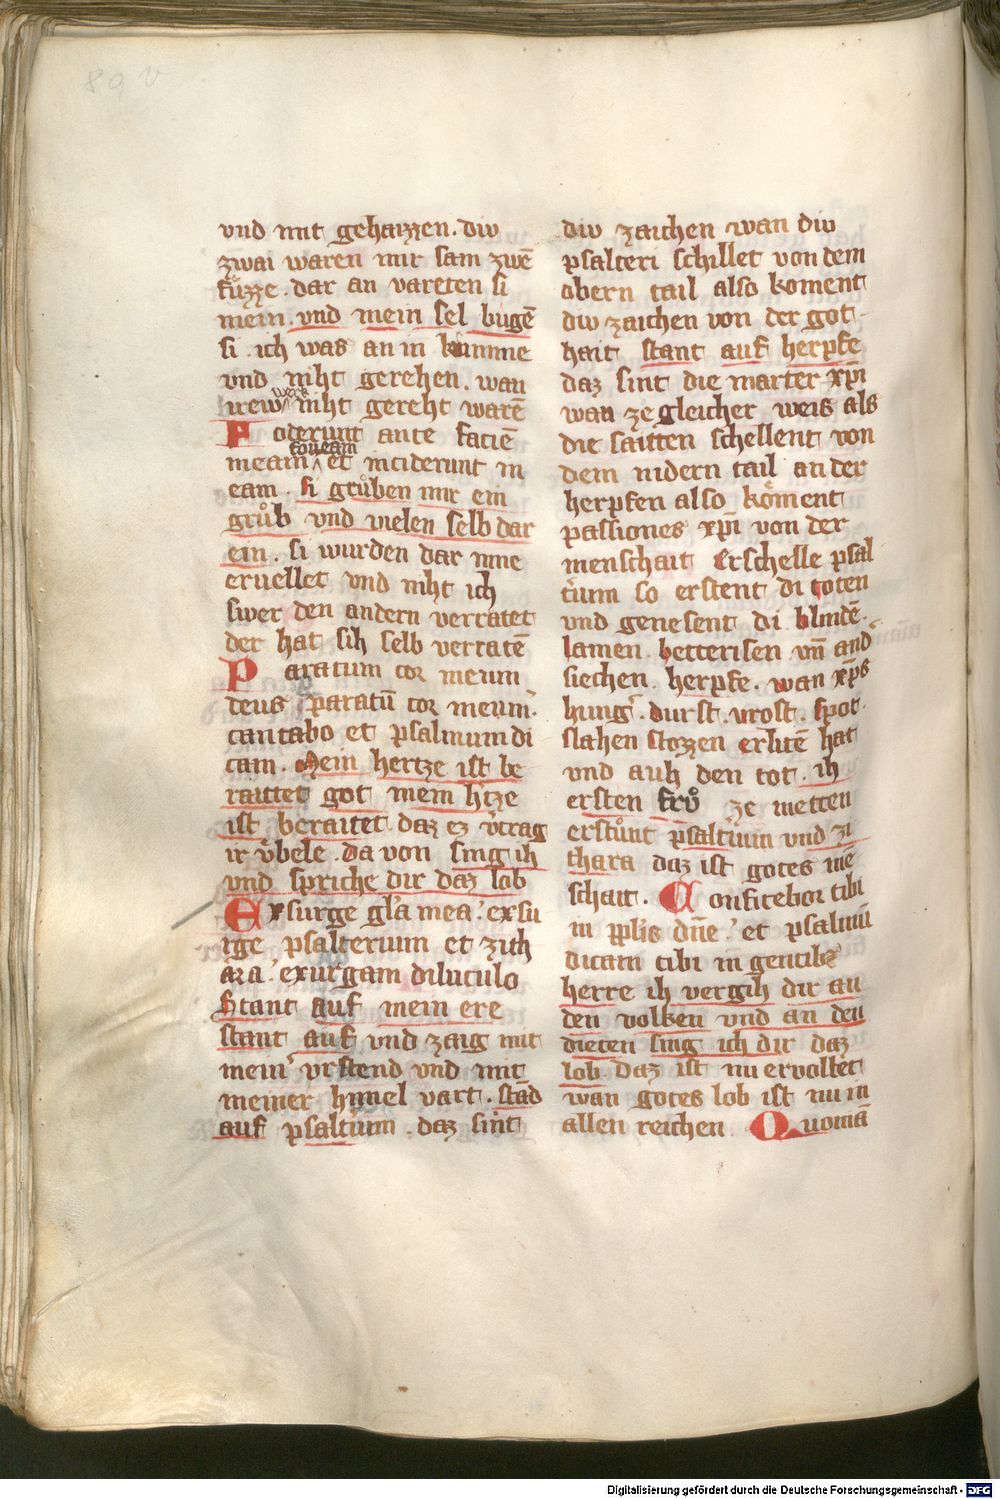 89 v
vnd mit gehaizzen . diw
zwai waren mir sam zwē
fuͤzze . dar an vareten si
mein . vnd mein sel bugē
si . ich was an in kumme
vnd niht gerehen . wan
irew werk niht gereht warē
Foderunt ante faciē
meam foueam et inciderunt in
eam . si gruͦben mir ein
gruͦb vnd vielen selb dar
ein . si wurden dar inne
eruellet vnd niht ich
swer den andern verratet
der hat sih selb verratē
Paratum cor meum
deus paratū cor meum .
cantabo et psalmum di
cam . Mein hertze ist be
raittet got mein h̄tze
ist beraitet . daz ez v̄trag
ir vͤbele . da von sing ih
vnd spriche dir daz lob
Exsurge gl̄a mea . exsu
rge psalterium et zith
ara . exurgam diluculo
Stant auf mein ere
stant auf vnd zaig mit
mein̄ vrstend vnd mit
meiner himel vart . stād
auf psalt̄ium . daz sint
diw zaichen wan diw
psalteri schillet von dem
obern tail also koment
diw zaichen von der got
hait stant auf herpfe
daz sint die marter xp̄i
wan ze gleicher weis als
die saitten schellent von
dem nidern tail an der
herpfen also koͤment
passiones xp̄i von der
menschait Erschelle psal
t̄ium so erstent di toten
vnd genesent di blindē .
lamen . betterisen vn̄ and̄
siechen . herpfe . wan xp̄s
hunḡ . durst . vrost . spot .
slahen stozzen erlitē hat
vnd auh den tot . ih
ersten fruͦ ze metten
erstuͦnt psalt̄ium vnd zi
thara daz ist gotes mē
schait . Confitebor tibi
in pp̄lis dn̄e . et psalmū
dicam tibi in gentibꝫ
herre ih vergih dir an
den volken vnd an den
dieten sing ich dir daz
lob . daz ist nu ervollet
wan gotes lob ist nu in
allen reichen . Quoniā
Digitalisierung gefördert durch die Deutsche Forschungsgemeinschaft - DFG